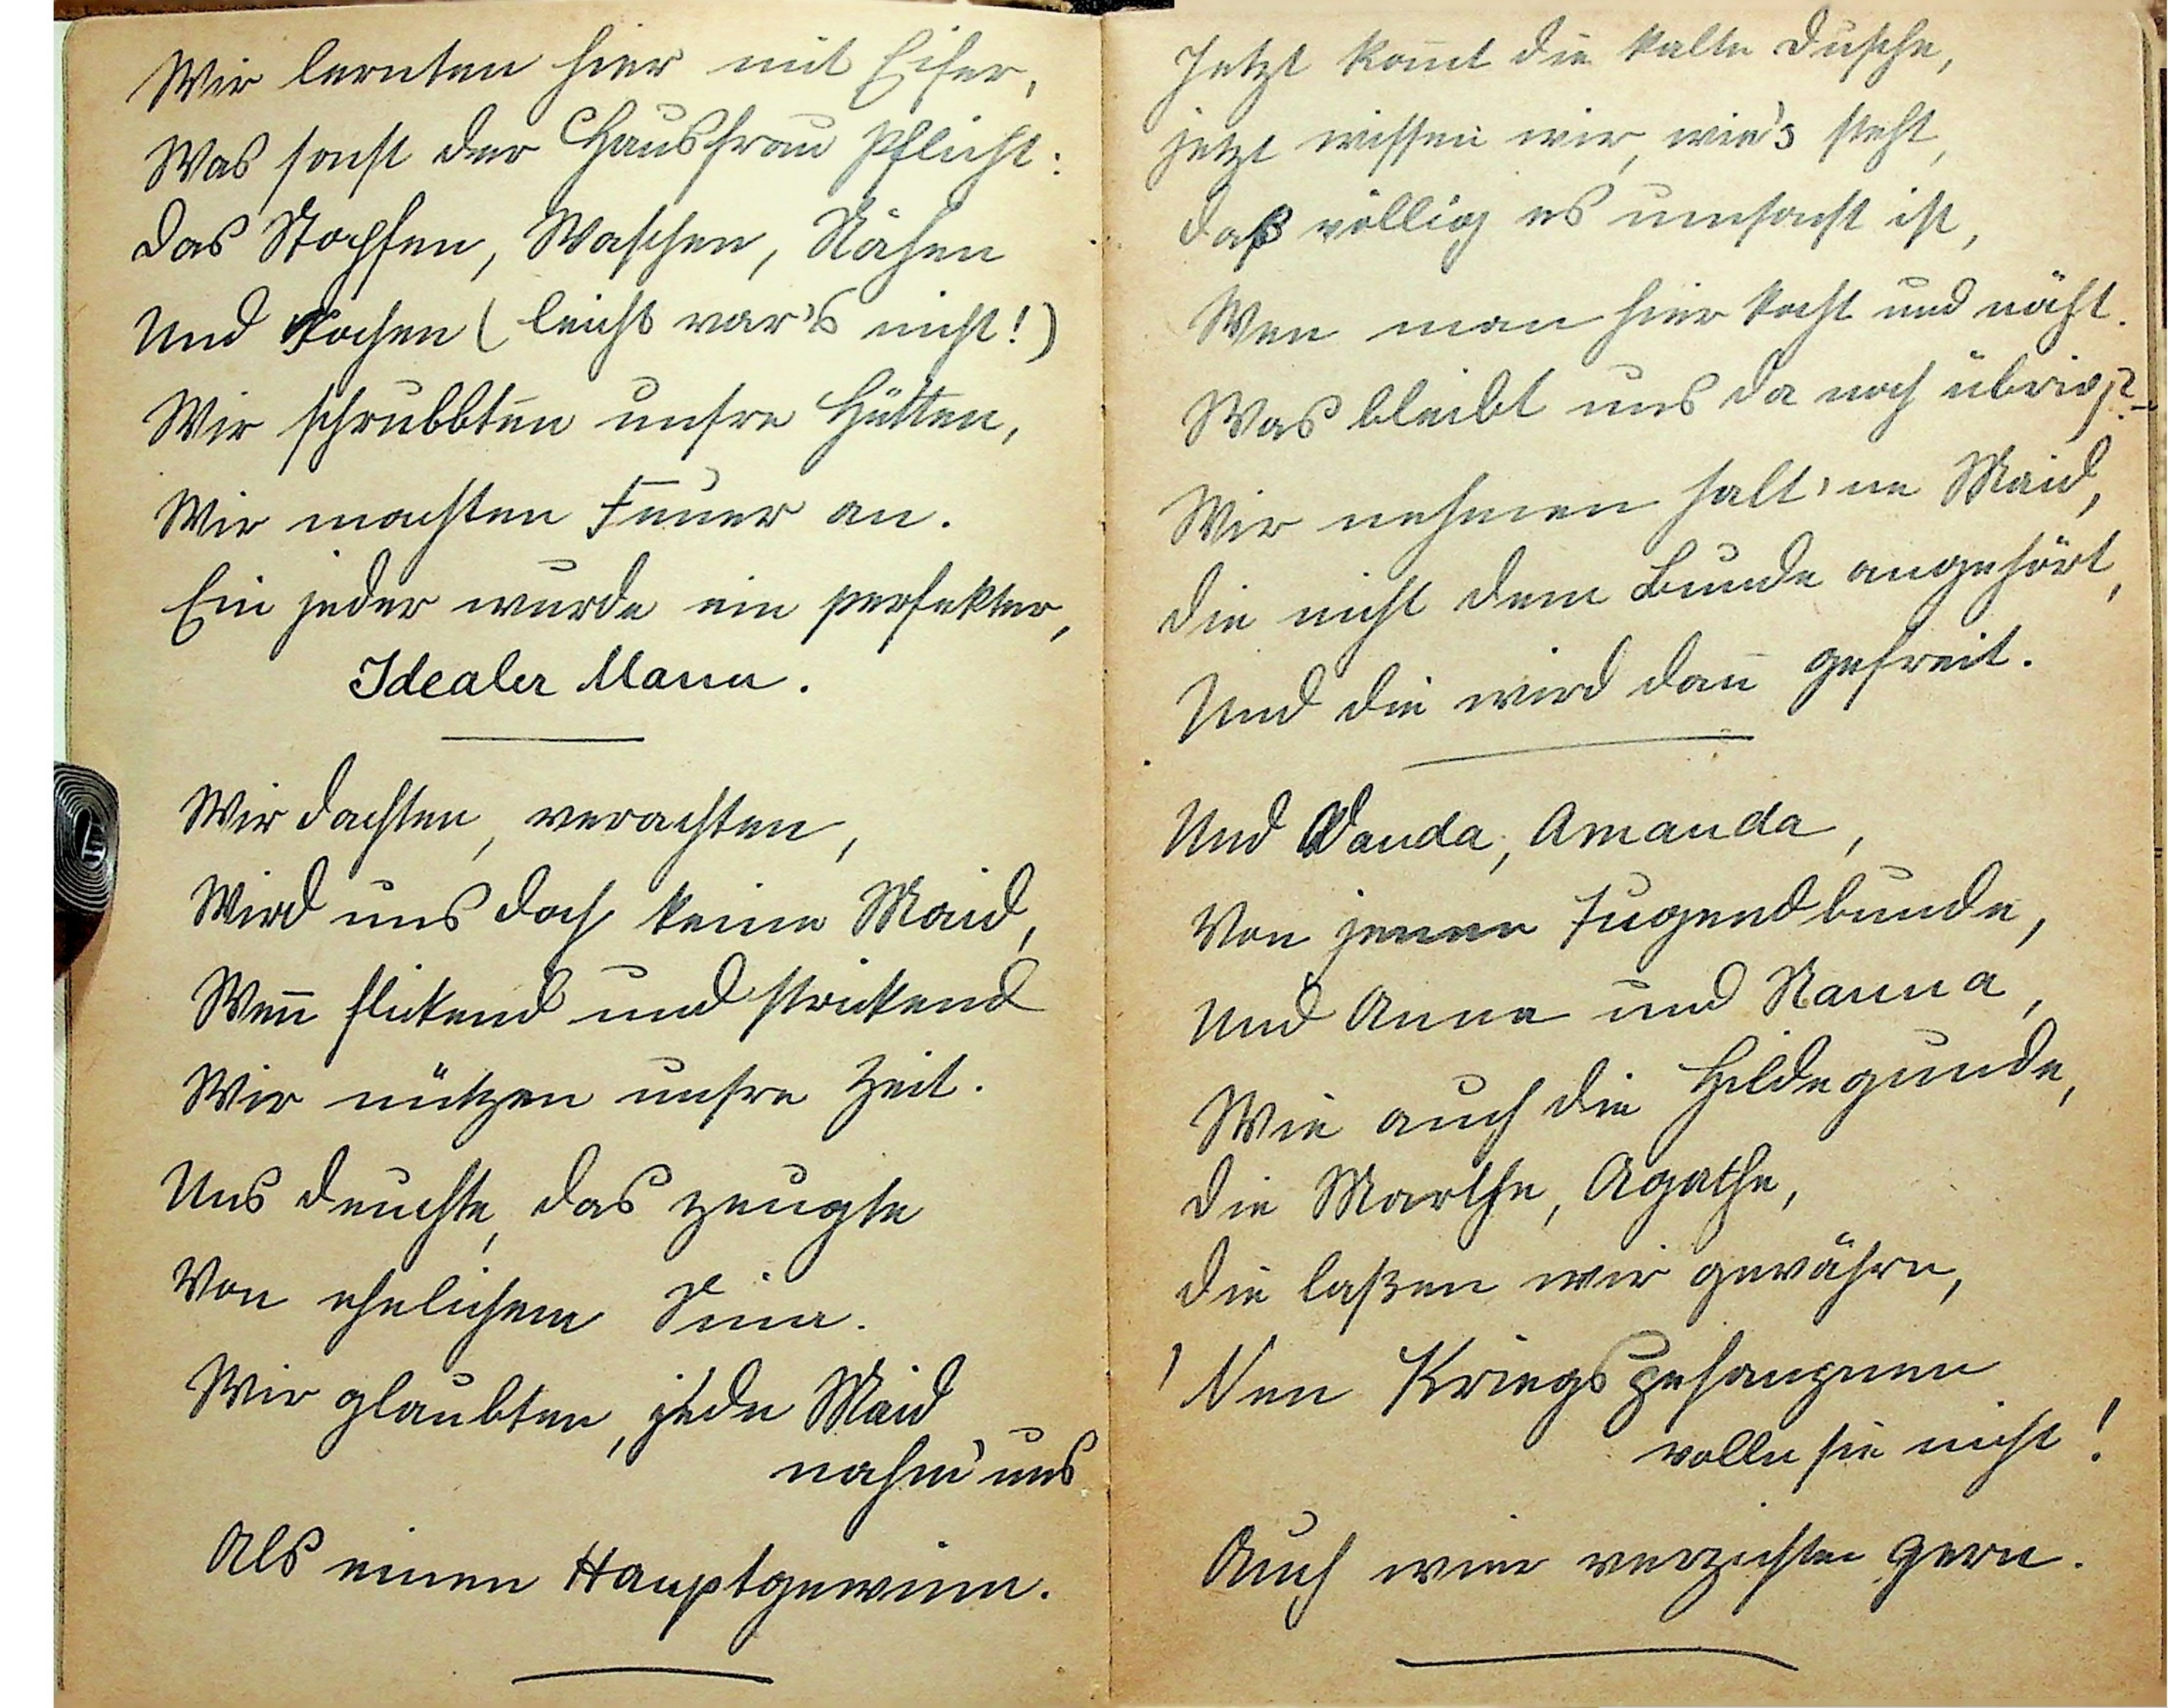 Wir lernten hier mit Eifer,
Was sonst der Hausfrau Pflicht:
Das Stopfen, Waschen, Nähen
Und Kochen (leicht war's nicht!)
Wir schrubbten unsre Hütten,
Wir machten Feuer an.
Ein jeder wurde ein perfekter,
Idealer Mann.
Wir dachten, verachten,
Wird uns doch keine Maid,
Wen̅ flickend und strickend
Wir nützen unsre Zeit.
Uns deuchte, das zeugte
Von ehelichem Sinn.
Wir glaubten, jede Maid
nahm' uns
Als einen Hauptgewinn.
Jetzt kom̅t die kalte Dusche,
jetzt wissen wir, wie's steht,
daß völlig es umsonst ist,
Wen man hier kocht und näht.
Was bleibt uns da noch übrig?-
Wir nehmen halt 'ne Maid,
die nicht dem Bunde angehört,
Und die wird dan̅ gefreit.
Und Wanda, Amanda,
Von jenem Jugendbunde,
Und Anna und Nanna,
Wie auch die Hildegunde,
die Marthe, Agathe,
die laßen wir gewähre,
'Nen Kriegsgefangnen
wolln sie nicht!
Auch wir verzichten gern.